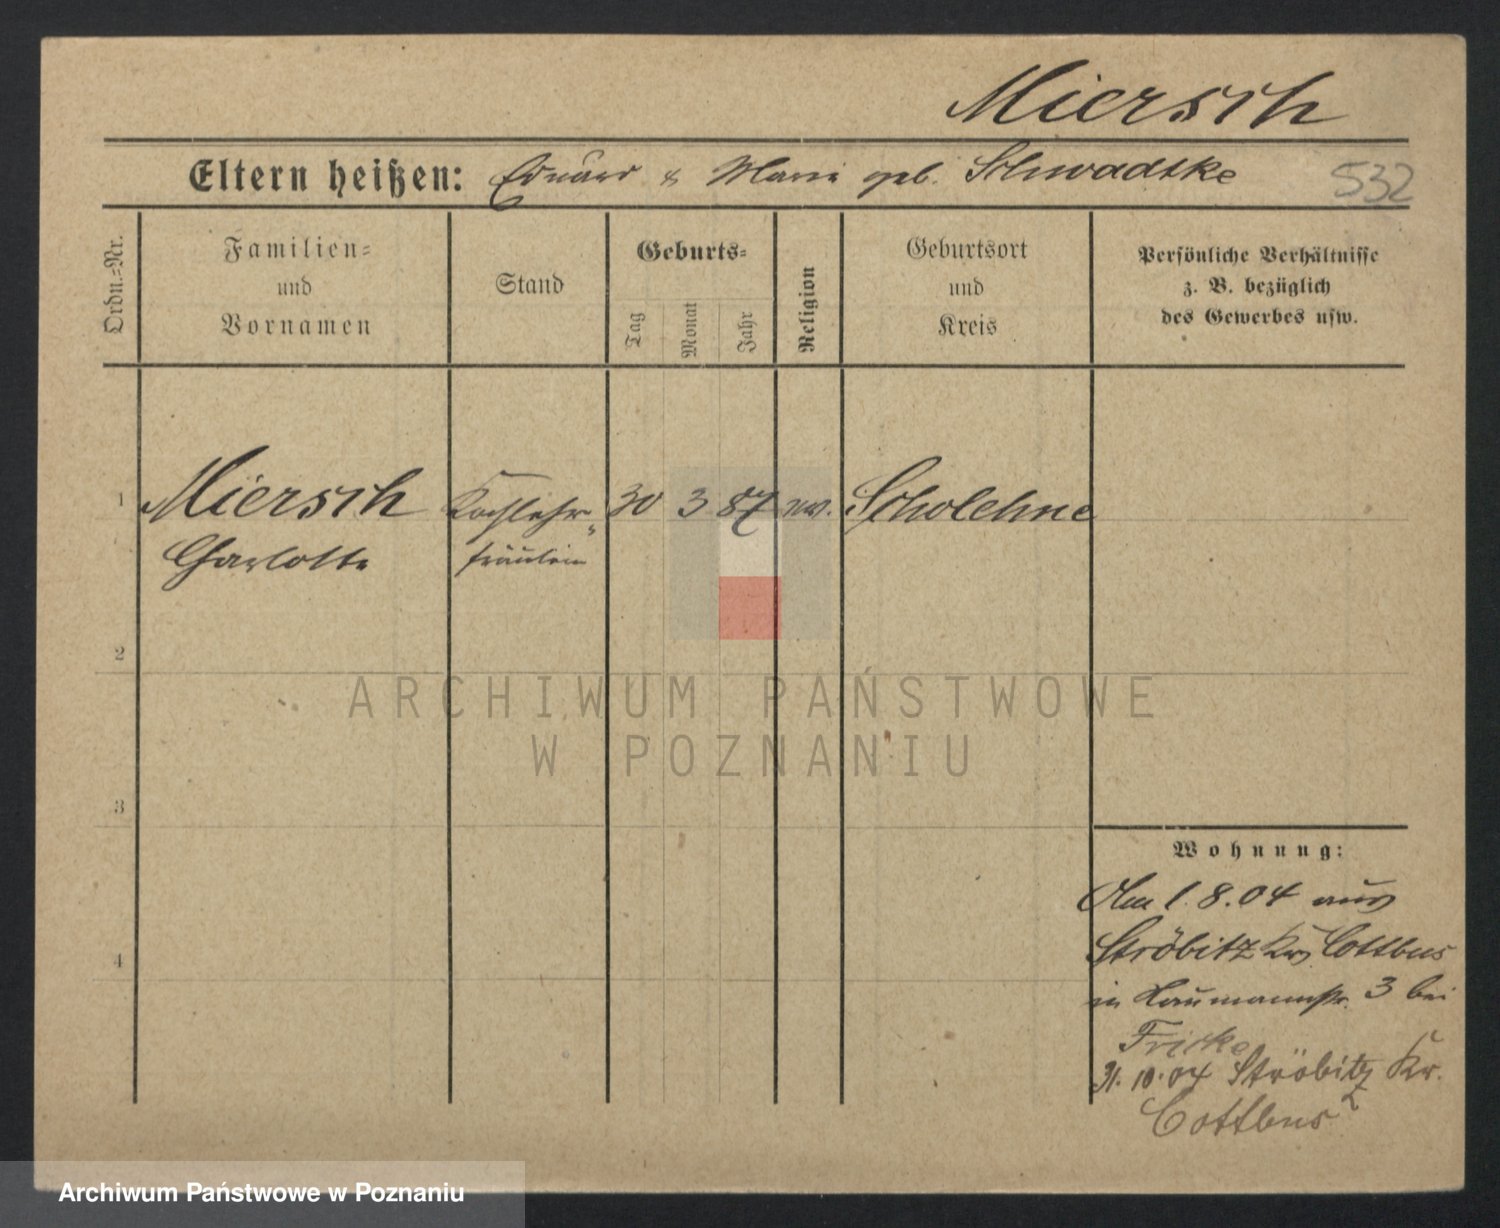 Miersch
Eltern heißen: Eduard & Marie geb. Schwadtke
532
Ordn.=Nr.
Familien=
und
Vornamen
Stand
Geburts=
Tag
Monat
Jahr
Religion
Geburtsort
und
Kreis
Persönliche Verhältnisse
z. B. bezüglich
des Gewerbes usw.
1 Miersch Kochlehr- 30 3 87 ev. Scholehne
Charlotte fräulein
2
3
4
Wohnung:
Am 1.8.04 aus
Ströbitz Krs. Cottbus
in Naumannstr. 3 bei
Fricke
31.10.04 Ströbitz Kr.
Cottbus
ARCHIWUM PAŃSTWOWE
W POZNANIU
Archiwum Państwowe w Poznaniu